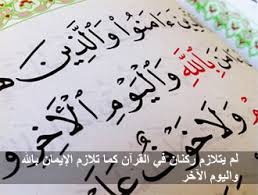 ءَامَنُوا وَالَّذِينَ
بِاللَّهِ وَالْيَوْمِ الْأَخِرِ
وَلَا خَوْفٌ
لم يتلازم ركنان في القرآن كما تلازم الإيمان بالله
واليوم الآخر